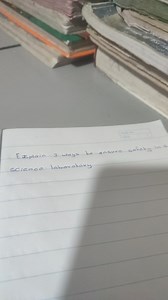 Explain 3 ways to ensure safety in
science laboratory